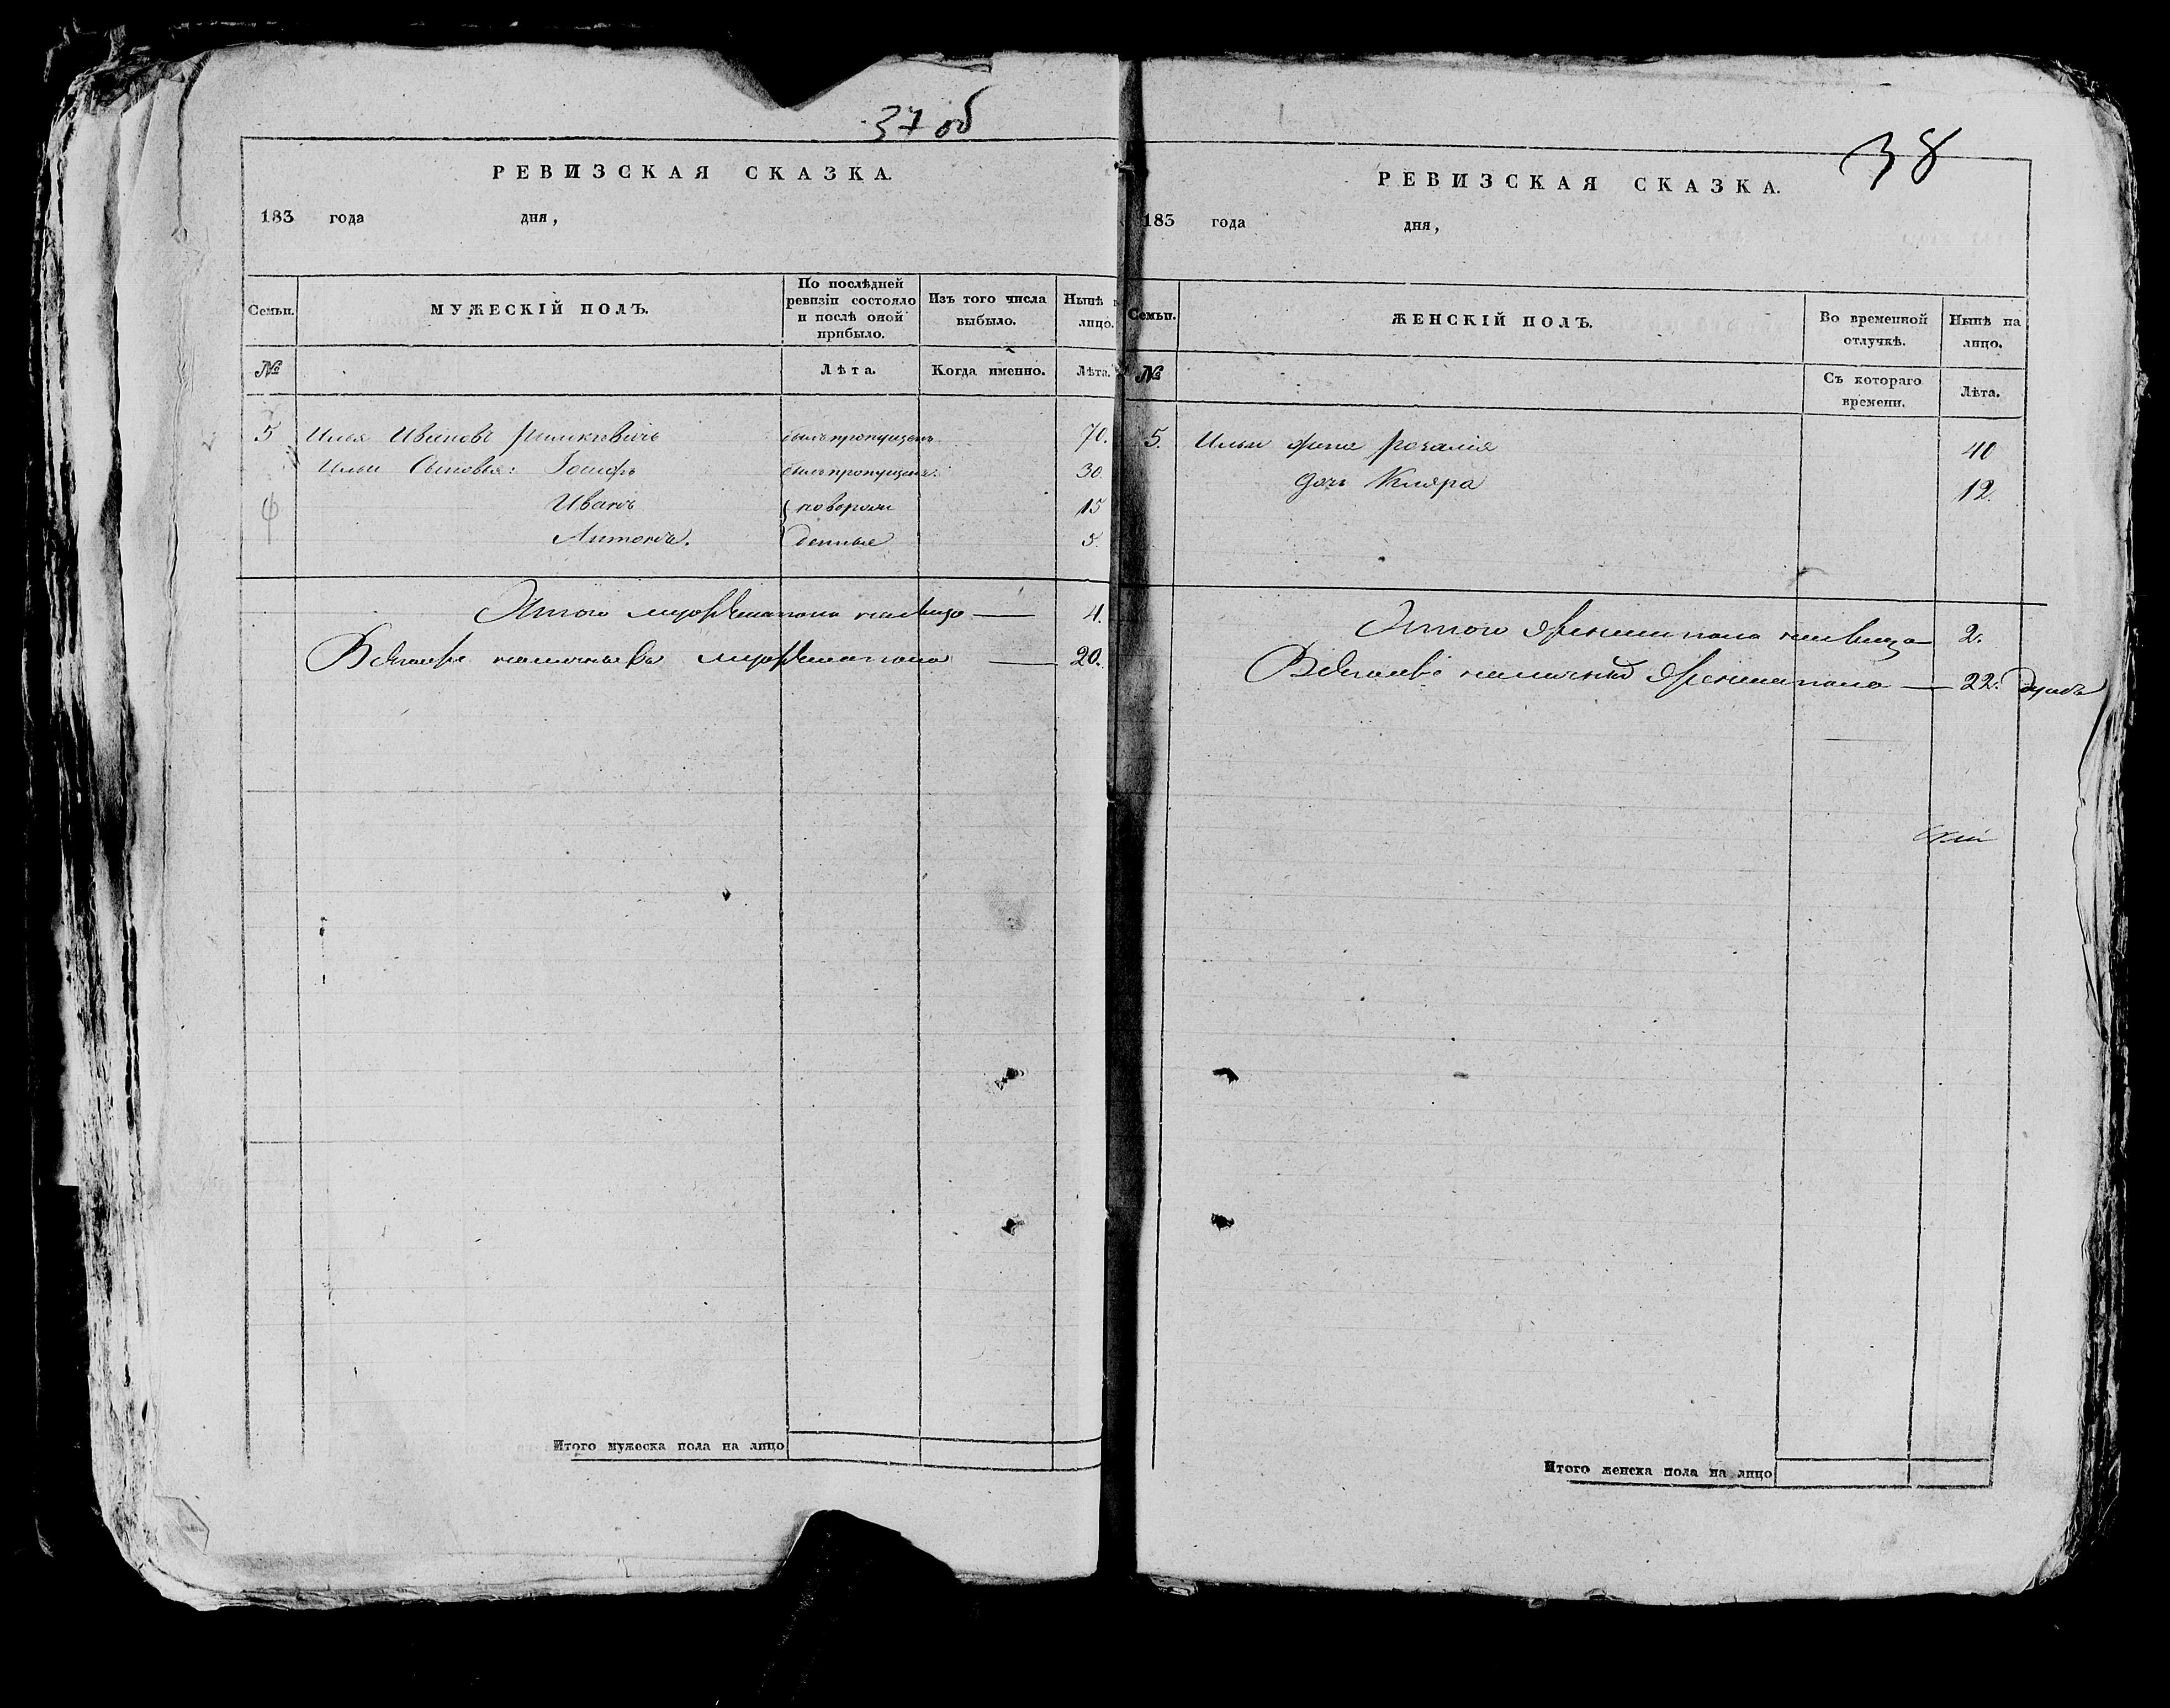 37 об
РЕВИЗСКАЯ СКАЗКА.
183 года дня,
Семьи.
МУЖЕСКІЙ ПОЛЪ.
По послѣдней ревизіи состояло и послѣ оной прибыло.
Изъ того числа выбыло.
Нынѣ на лицо.
№
Лѣта.
Когда именно.
Лѣта.
5 Илья Ивановъ былъ пропущенъ 70.
Ильи Сыновья: Іосифъ былъ пропущенъ. 30
Иванъ 15
Антонъ. 5.
Итого мужеска пола на лицо — 4.
Всего мужеска пола — 20.
Итого мужеска пола на лицо
38
РЕВИЗСКАЯ СКАЗКА.
183 года дня,
Семьи.
ЖЕНСКІЙ ПОЛЪ.
Во временной отлучкѣ.
Нынѣ на лицо.
№
Съ котораго времени.
Лѣта.
5. Ильи жена Розалія 40
дочь Кляра 12.
Итого женска пола на лицо 2.
наличныхъ женска пола — 22. душъ
Итого женска пола на лицо